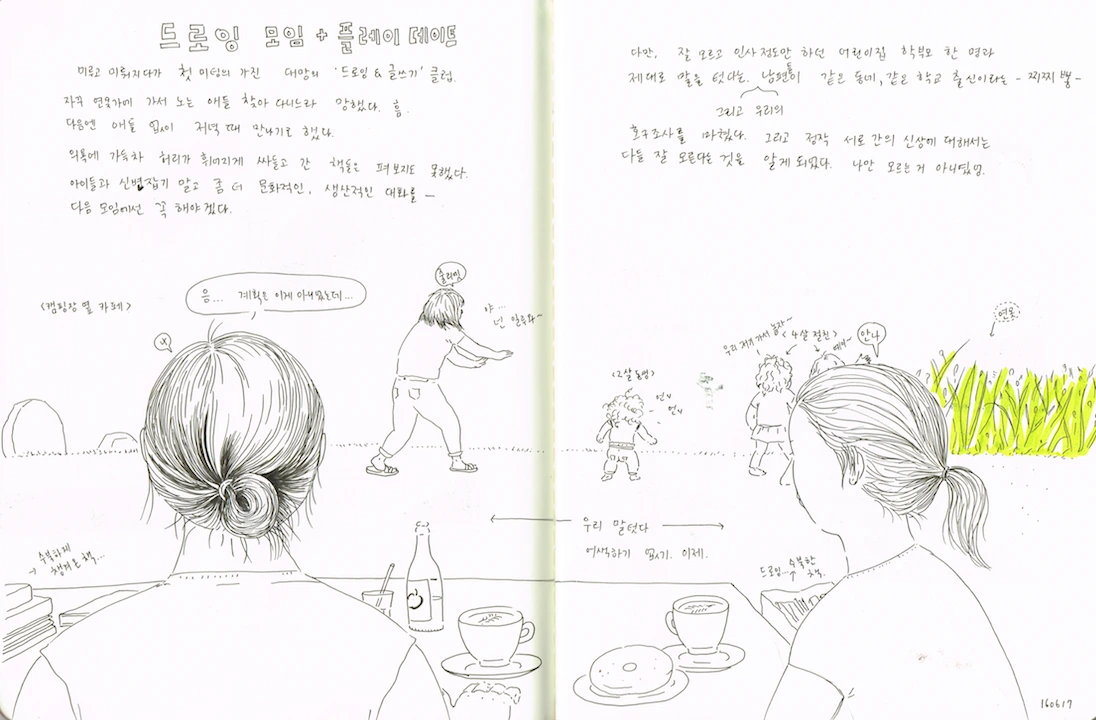 드로잉 모임 + 플레이 데이트
미루고 미뤄지다가 첫 미팅의 가진 대망의 '드로잉 & 글쓰기' 클럽.
자꾸 연못가에 가서 노는 애들 찾아 다니느라 망했다. 흠.
다음엔 애들 없이 저녁 때 만나기로 했다.
의욕에 가득차 허리가 휘어지게 싸들고 간 책들은 펴 보지도 못했다.
아이들과 신변잡기 말고 좀 더 문화적인, 생산적인 대화를 —
다음 모임에선 꼭 해야겠다.
다만, 잘 모르고 인사정도만 하던 어린이집 학부모 한 명과
제대로 말을 텄다는. 남편들이 같은 동네, 같은 학교 출신이라는 - 찌찌 뽕 -
그리고 우리의
호구조사를 마쳤다. 그리고 정작 서로 간의 신상에 대해서는
다들 잘 모른다는 것을 알게 되었다. 나만 모르는 거 아니었넹.
<캠핑장 옆 카페>
음... 계획은 이게 아니었는데...
나
줄리밍
야...
넌 일루와~
<2살 동생>
언니
언니
우리 저기 가서 놀자~
<4살 절친>
예써~
안나
연못
우리 말텄다
어색하기 없기. 이제.
수북하게
챙겨온 책...
드로잉... 수북한
책.
160617